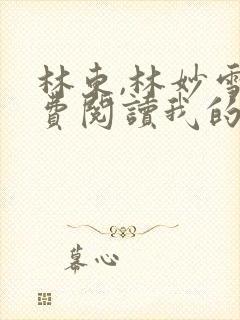 林东,林妙雪
費閱讀我的
幕心